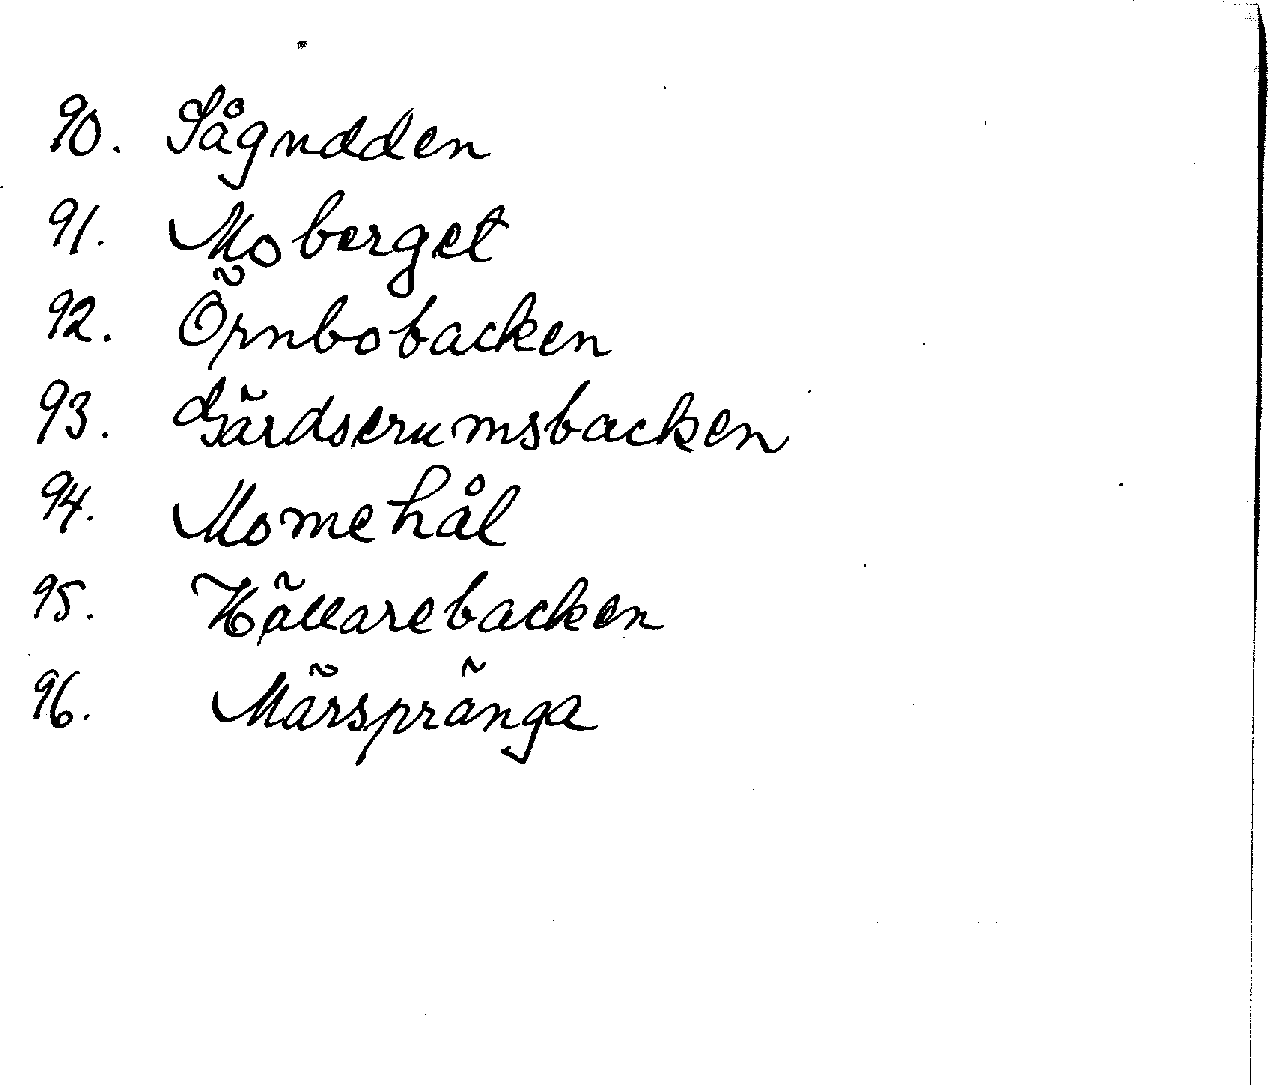 90. Sågudden
91. Moberget
92. Örnbobacken
93. Gärdserumsbacken
94. Momehål
95. Källarebacken
96. Märspränga